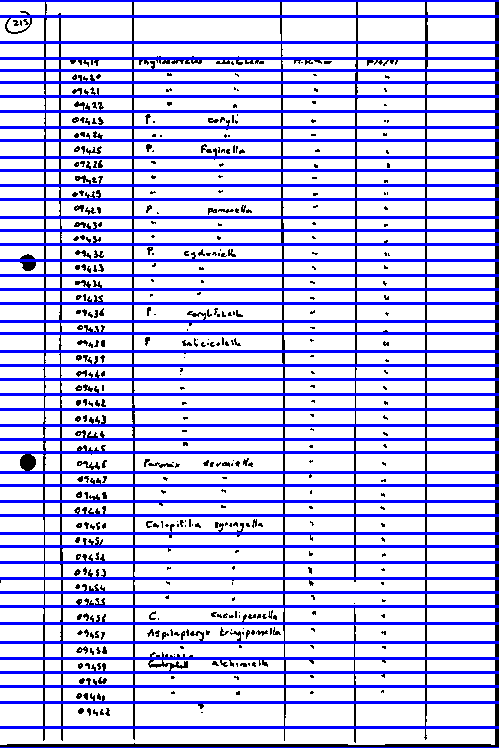 213
09419 Phyllonorycter
09420 " "
09421 " "
09422 " "
09423 P. coryli " "
09424 " " " "
09425 P. Faginella " "
09426 " " " "
09427 " " " "
09428 " " " "
09429 P. pomonella " "
09430 " " " "
09431 " " " "
09432 P. cydoniella " "
09433 " " " "
09434 " " " "
09435 " " " "
09436 P. " "
09437 " " "
09438 P salicicolella " "
09439 " " "
09440 " " "
09441 " " "
09442 " " "
09443 " " "
09444 " " "
09445 " " "
09446 Parornix devoniella " "
09447 " " " "
09448 " " " "
09449 " " " "
09450 Caloptilia syringella " "
09451 " " " "
09452 " " " "
09453 " " " "
09454 " " " "
09455 " " " "
09456 C. cuculipennella " "
09457 Aspilapteryx tringipennella " "
09458 " " " "
09459 alchimiella " "
09460 " " " "
09461 " " " "
09462 ?